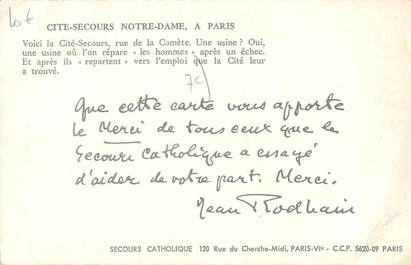 Lot
CITE-SECOURS NOTRE-DAME, A PARIS
Voici la Cité-Secours, rue de la Comète. Une usine ? Oui,
une usine où l'on répare « les hommes » après un échec.
Et après ils « repartent » vers l'emploi que la Cité leur
a trouvé.
Que cette carte vous apporte
le Merci de tous ceux que le
Secours Catholique a essayé
d'aider de votre part. Merci.
Jean Rodhain
SECOURS CATHOLIQUE 120 Rue du Cherche-Midi, PARIS-VIe - C.C.P. 5620-09 PARIS